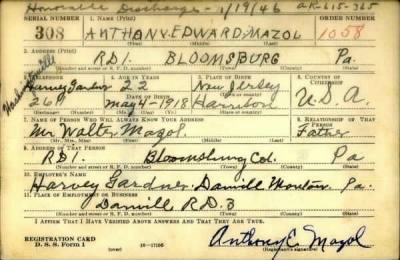 Honorable Discharge - 1/19/46 AR-615-365
SERIAL NUMBER 1. NAME (Print) ORDER NUMBER
308 ANTHONY-EDWARD-MAZOL 1058
(First) (Middle) (Last)
2. ADDRESS (Print)
RD1. BLOOMSBURG Pa.
(Number and street or R. F. D. number) (Town) (County) (State)
3. TELEPHONE 4. AGE IN YEARS 5. PLACE OF BIRTH 6. COUNTRY OF CITIZENSHIP
Harvey Gardner 22 New Jersey
DATE OF BIRTH
267 May-4-1918 Harrison U.S.A.
(Exchange) (Number) (Mo.) (Day) (Yr.) (State or country)
7. NAME OF PERSON WHO WILL ALWAYS KNOW YOUR ADDRESS 8. RELATIONSHIP OF THAT PERSON
Mr. Walter Mazol Father
(Mr., Mrs., Miss) (First) (Middle) (Last)
9. ADDRESS OF THAT PERSON
RD1. Bloomsburg Col. Pa
(Number and street or R. F. D. number) (Town) (County) (State)
10. EMPLOYER'S NAME
Harvey Gardner. Danvill Montour Pa.
11. PLACE OF EMPLOYMENT OR BUSINESS
Danvill R.D. 3
(Number and street or R. F. D. number) (Town) (County) (State)
I AFFIRM THAT I HAVE VERIFIED ABOVE ANSWERS AND THAT THEY ARE TRUE.
REGISTRATION CARD
D. S. S. Form 1 (over) 16-17105 Anthony E. Mazol